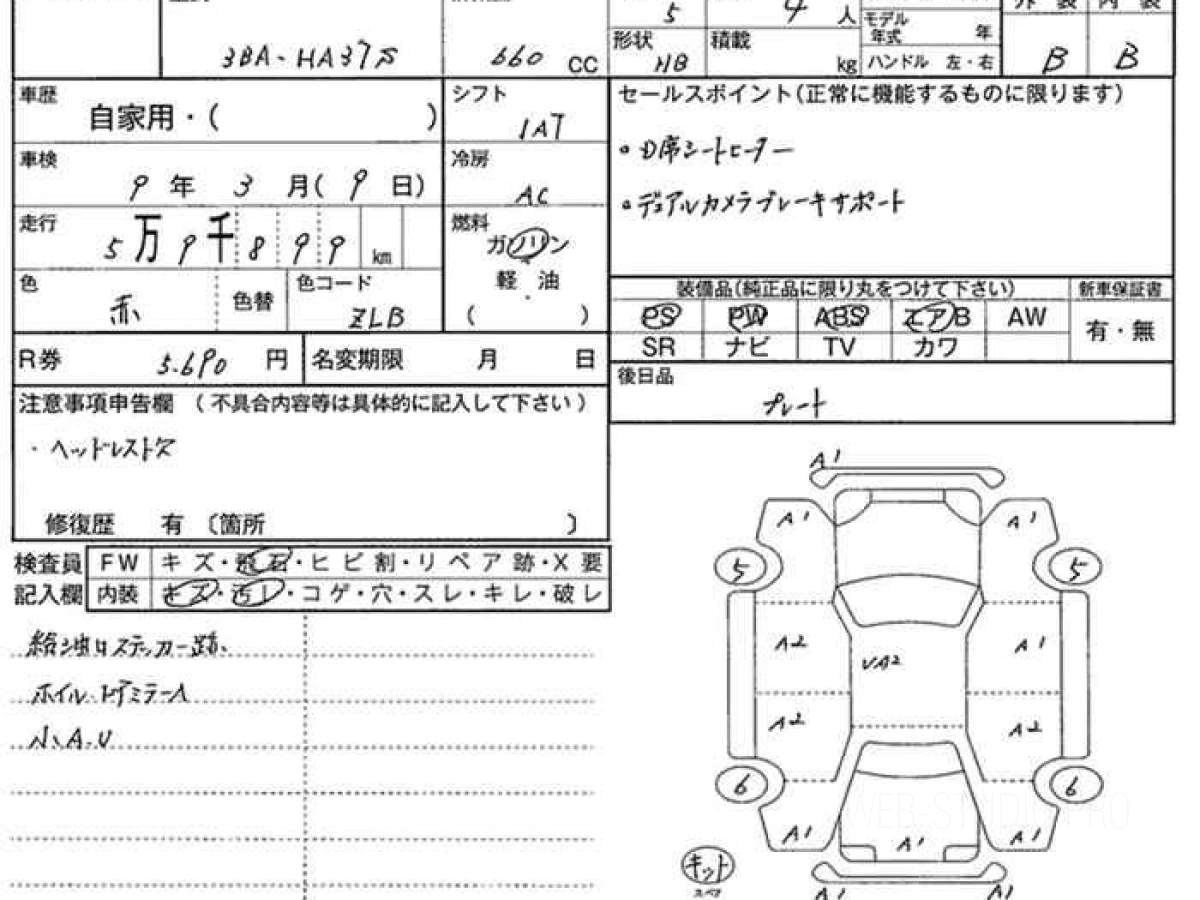 3BA-HA37S
660 CC
5
4 人
形状 HB
積載 kg
モデル年式 年
ハンドル 左・右
外装 内装
B B
車歴 自家用・( )
シフト 1AT
車検 9年3月(9日)
冷房 AC
走行 5万9千899km
燃料
ガソリン
軽油
( )
色 赤
色替
色コード ZLB
R券 5.690 円
名変期限 月 日
注意事項申告欄 (不具合内容等は具体的に記入して下さい)
・ヘッドレスト欠
修復歴 有〔箇所 〕
セールスポイント(正常に機能するものに限ります)
・D席シートヒーター
・デュアルカメラブレーキサポート
装備品(純正品に限り丸をつけて下さい)
新車保証書
PS PW ABS エアB AW
有・無
SR ナビ TV カワ
後日品
プレート
検査員記入欄
FW キズ・飛石・ヒビ割・リペア跡・X要
内装 キズ・汚レ・コゲ・穴・スレ・キレ・破レ
給油口ステッカー跡、
ホイル、ドアミラーA
小、A.U
A1
A1 A1
5 5
A2 UA2 A1
A2 A2
6 6
A1 A1 A1
キット
スペア
A1 A1
WEB-STUDIO PRO